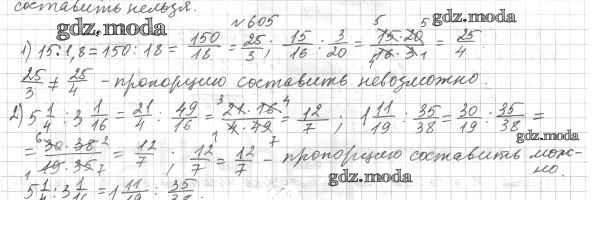 составить нельзя.
gdz.moda
№ 605
gdz.moda
1) 15 : 1,8 = 150 : 18 = 150/18 = 25/3 ; 15/16 : 3/20 = 15·20/16·3 = 25/4 .
25/3 ≠ 25/4 - пропорцию составить невозможно.
2) 5 1/4 : 3 1/16 = 21/4 : 49/16 = 21·16/4·49 = 12/7 ; 1 11/19 : 35/38 = 30/19 : 35/38 =
gdz.moda
= 30·38/19·35 = 12/7 ; 12/7 = 12/7 - пропорцию составить мож-
но.
gdz.moda
5 1/4 : 3 1/16 = 1 11/19 : 35/38 .